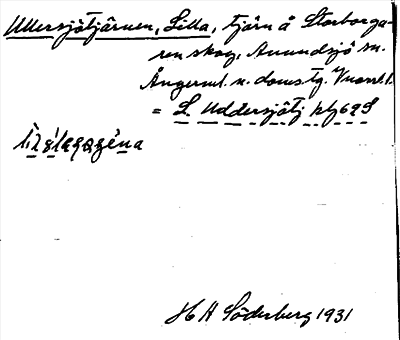 Ullersjötjärnen, Lilla, tjärn å Storborga-
ren skog, Anundsjö sn.
Ångerml. n. doms tg. Vnorrl. l.
= L. Uddersjötj kbl 69 S
H H Söderberg 1931